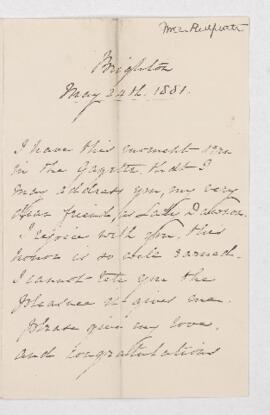 Mrs Redpath
Brighton
May 24th. 1881.
I have this moment seen
in the Gazette, that I
may address you, my very
dear friend, as Lady Dawson.
I rejoice with you. this
honor is so well earned.
I cannot tell you the
pleasure it gives me.
please give my love,
and congratulations